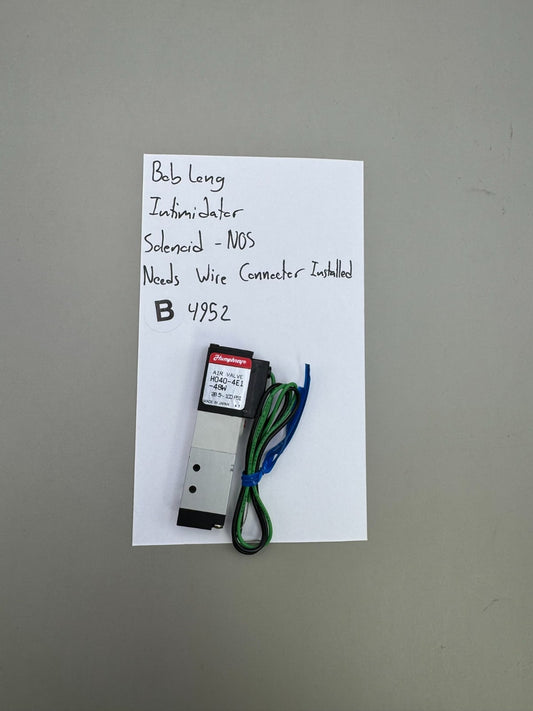 Bob Long
Intimidator
Solenoid - NOS
Needs Wire Connector Installed
B 4952
Humphrey
AIR VALVE
H040-4E1
-48W
28.5~100PSI
MADE IN JAPAN